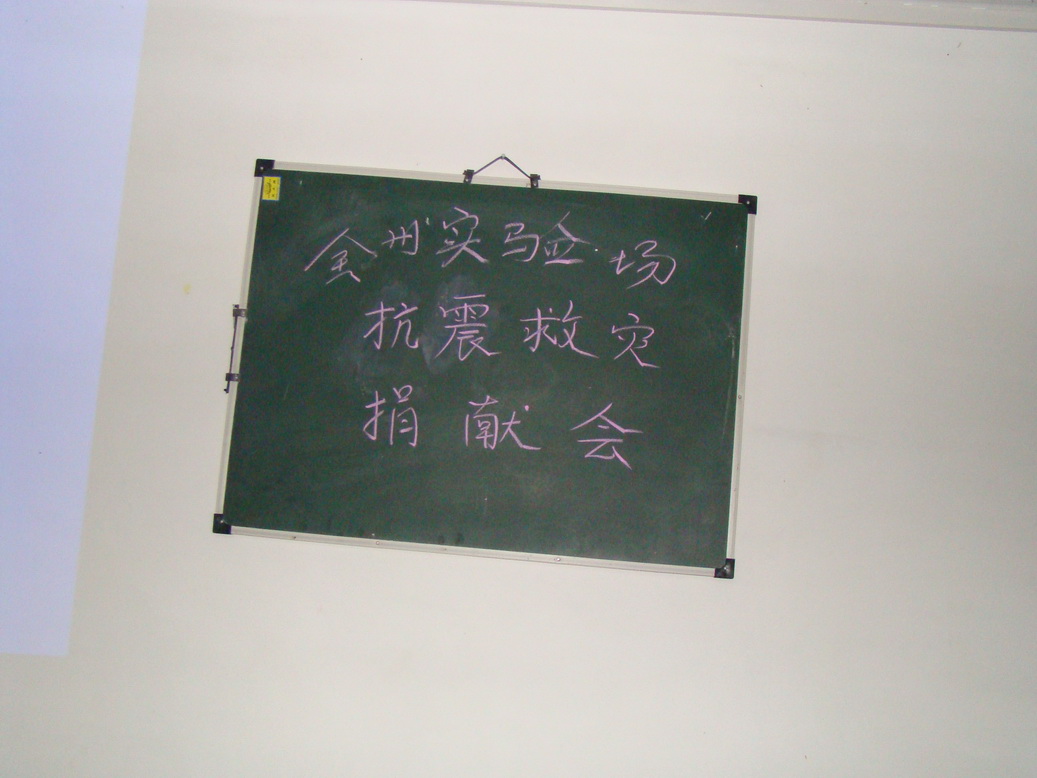 金州实验场
抗震救灾
捐献会